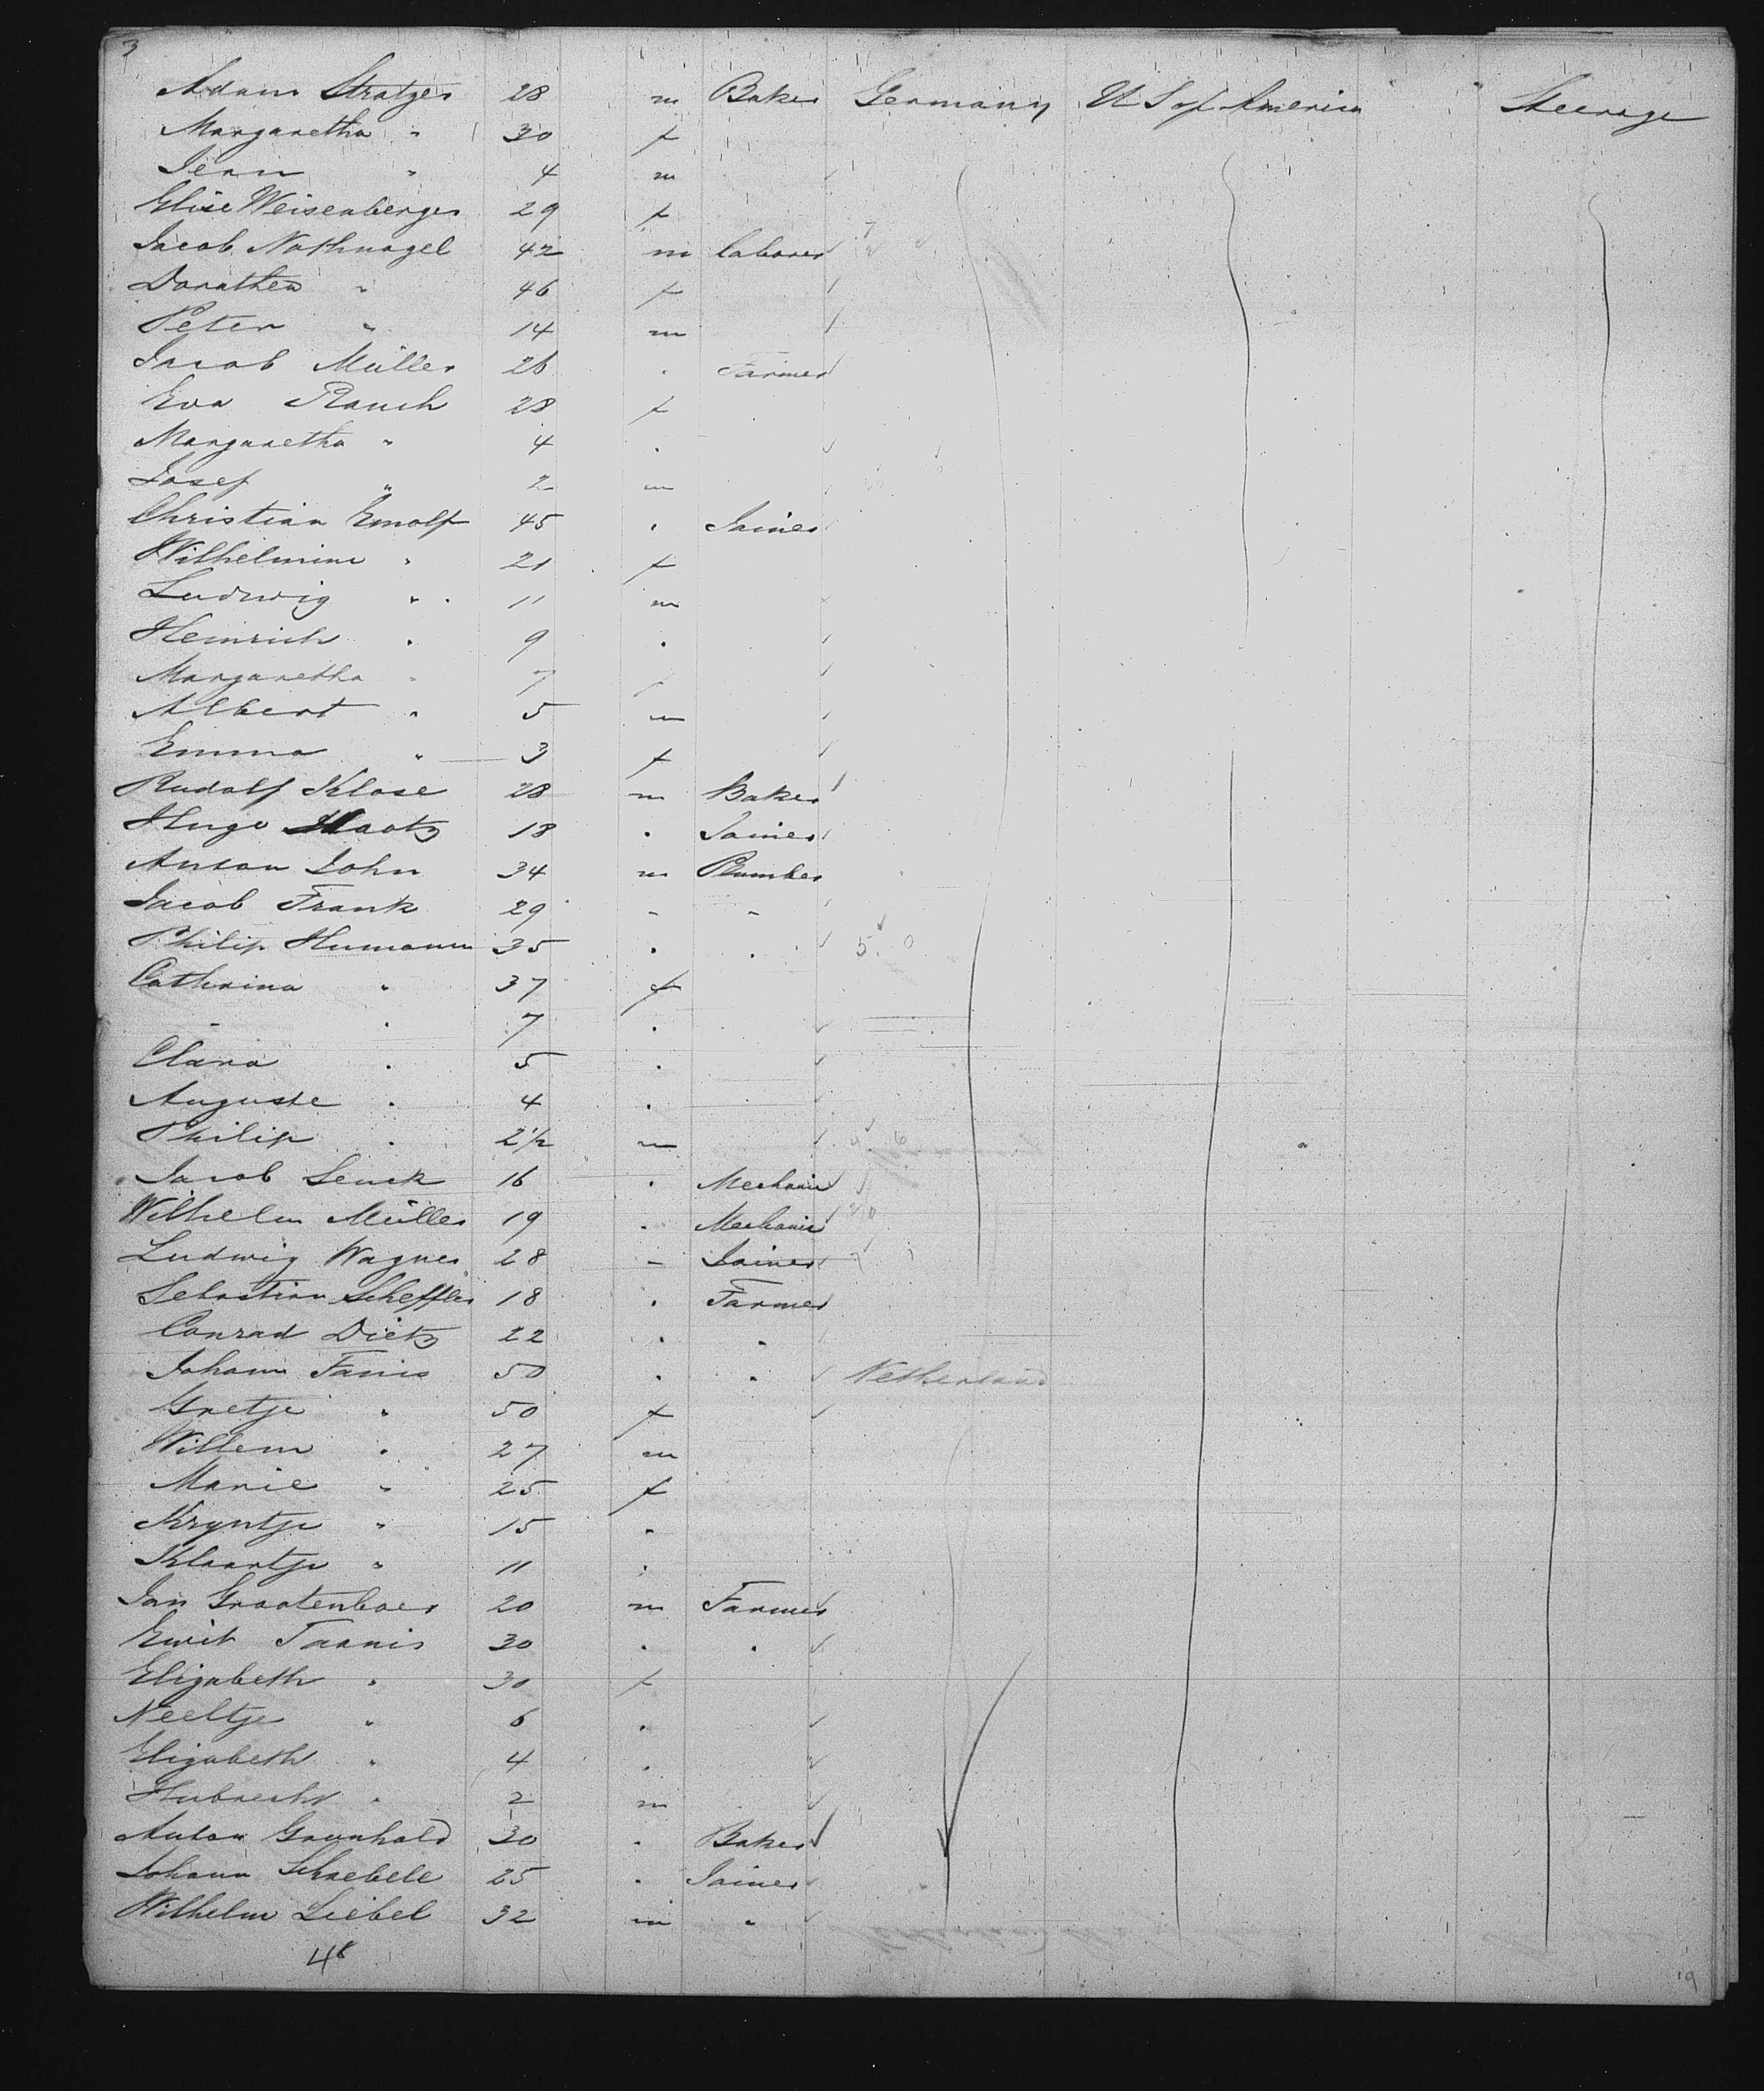 3
Adam Stratger 28 m Baker Germany U S of America Steerage
Margaretha " 30 f
Jean " 4 m
Elise Weisenberger 29 f
Jacob Nothnagel 42 m laborer
Dorothea " 46 f
Peter " 14 m
Jacob Müller 26 " Farmer
Eva Rauch 28 f
Margaretha " 4 "
Josef " 2 m
Christian Emolf 45 " Joiner
Wilhelmine " 21 f
Ludwig " 11 m
Heinrich " 9 "
Margaretha " 7 f
Albert " 5 m
Emma " 3 f
Rudolf Klose 28 m Baker
Hugo 18 " Joiner
Anton John 34 m Plumber
Jacob Frank 29 " "
Philip Humann 35 " "
Cathrina " 37 f
" " 7 "
Clara " 5 "
Auguste " 4 "
Philip " 2 1/2 m
Jacob Lenck 16 " Mechanic
Wilhelm Müller 19 " Mechanic
Ludwig Wagner 28 " Joiner
Sebastian Scheffler 18 " Farmer
Conrad Dietz 22 " "
Johann Tanis 50 " " Netherland
Gretje " 50 f
Willem " 27 m
Marie " 25 f
Kryntje " 15 "
Klaartje " 11 "
Jan Grootenboer 20 m Farmer
Ewit Taanis 30 " "
Elizabeth " 30 f
Neeltje " 6 "
Elizabeth " 4 "
Hubrecht " 2 m
Anton Grunhold 30 " Baker
Johann Schaebele 25 " Joiner
Wilhelm Liebel 32 m "
48